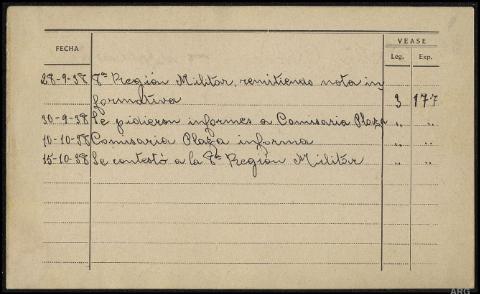 VEASE
FECHA
Leg. Exp.
28-9-38 7ª Region Militar, remitiendo nota in
formativa 3 177
30-9-38 Se pidieron informes a Comisaria Plaza " "
10-10-38 Comisaria Plaza informa " "
15-10-38 Se contestó a la 7ª Región Militar " "
ARG